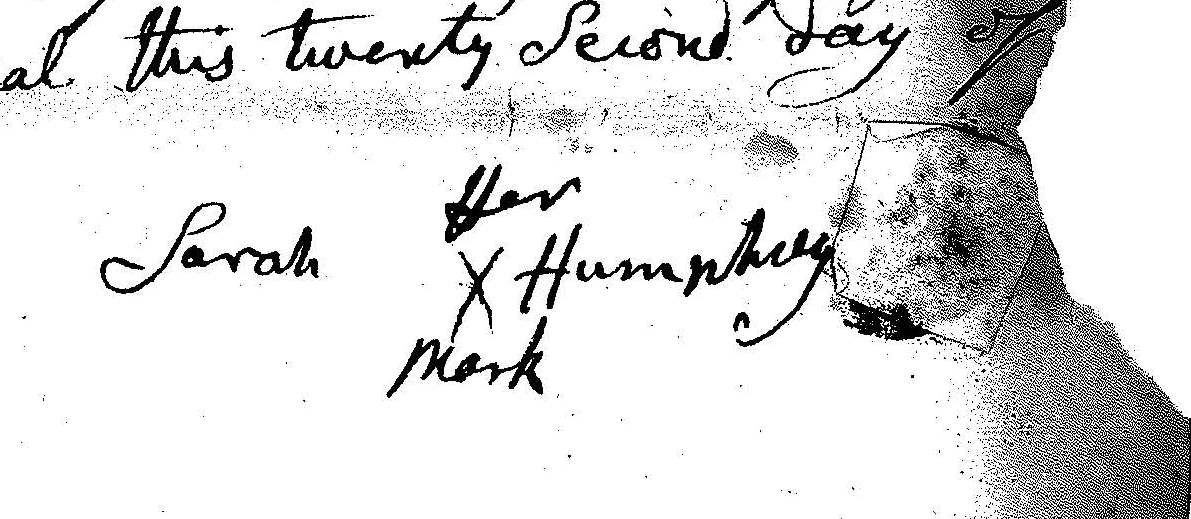 al this twenty Second day of
Her
Sarah X Humphrey
mark